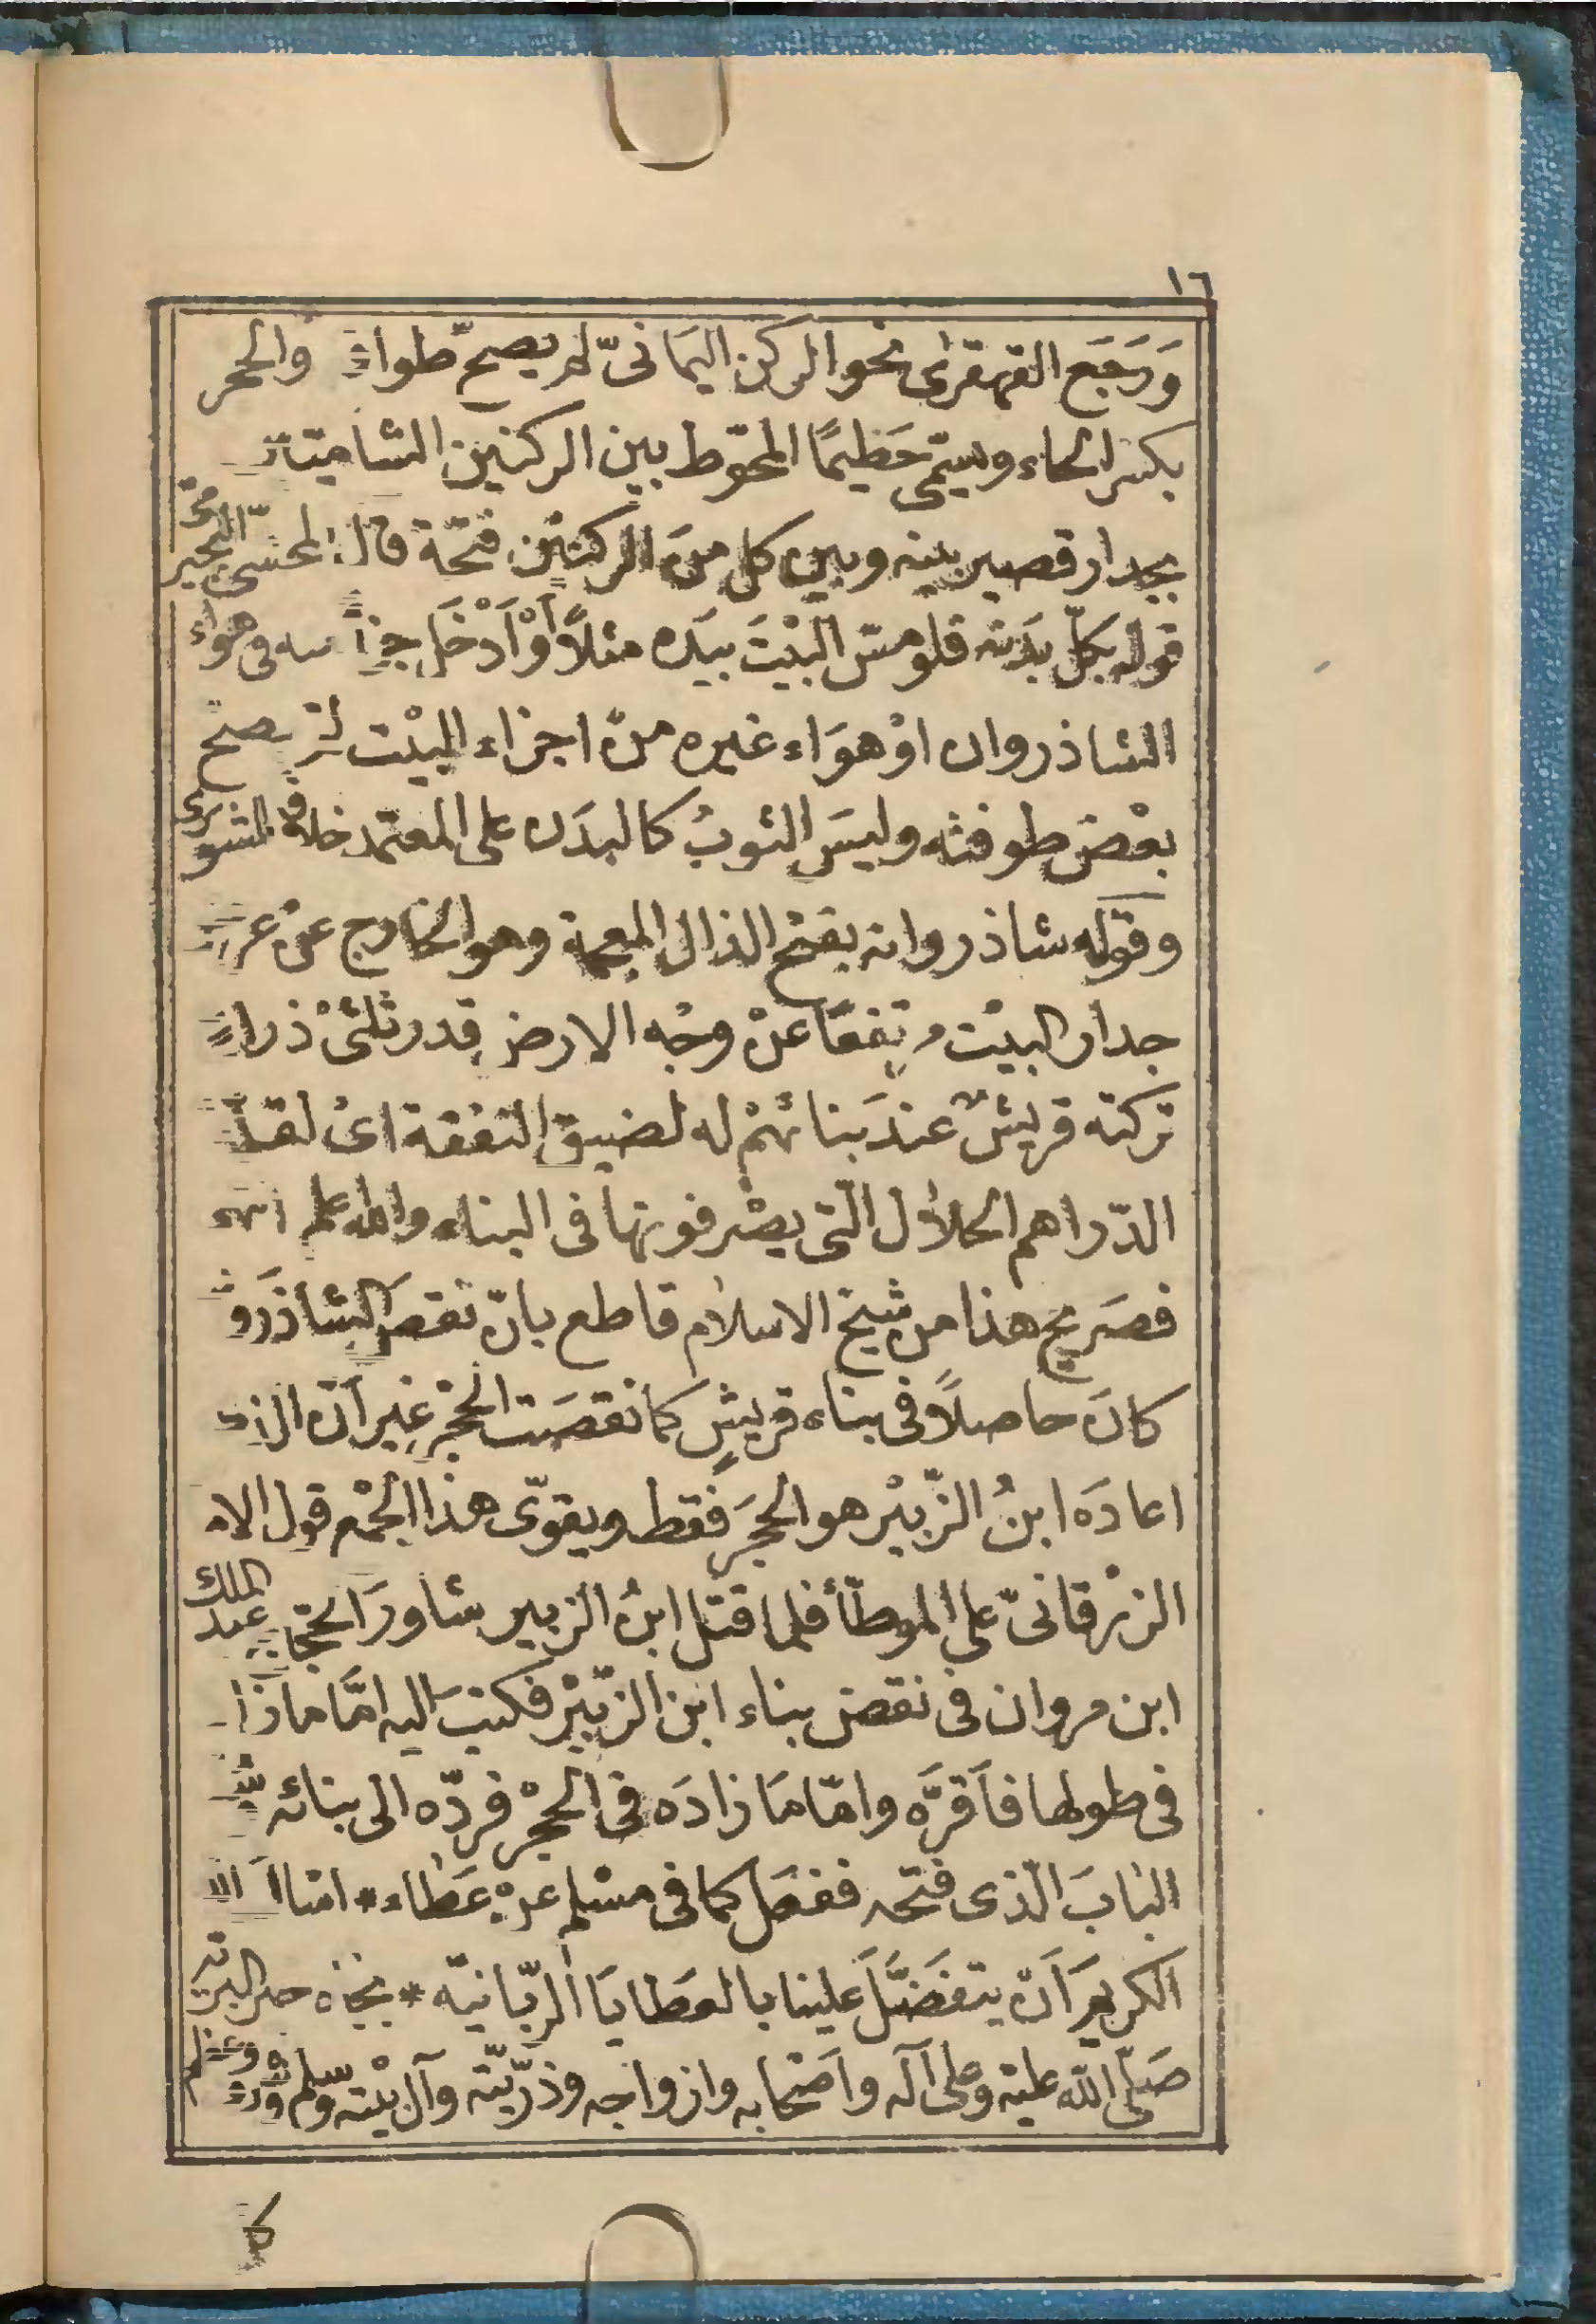 ١٦
وَرَجَعَ القهقرىٰ نحو الركن اليمَانىّ لم يصحّ طوافه والحجر
بكسر الحاء ويسمّى حَظيمًا المحوّط بين الركنين الشاميّين
بجدار قصير بينه وبين كل مِنَ الركنين فتحة قال المحشى البجير
قوله بكلّ بَدَنه فلو مسّ البَيْتَ بيَده مثلاً أوْ أدْخَل جزأ منه فى هوَاء
الشاذروان اوْ هوَاء غيره منْ اجزاء البيْت لم يصحّ
بعْض طوفته وليسَ الثوبُ كالبدَن على المعتمد خلافا
وقوله شاذروانه بفتح الذال المعجمة وهو الخارج عنْ عرض
جدار البيْت مرتفعًا عنْ وجْه الارض قدر ثلثىْ ذراع
تركته قريشٌ عندَ بنائهمْ له لضيق النفقة اىْ لقلّة
الدّراهم الحلاٰل الّتى يصْرفونها فى البناء والله اعلم انتهى
فصَريح هذا من شيخ الاسلاٰم قاطع بانّ نقصَ الشاذَروا
كانَ حاصلاً فى بناء قريشٍ كما نقصَت الحجْر غير انّ الذى
اعادَه ابنُ الزّبيْر هو الحجرَ فقط ويقوّى هذا الجمْع قول الاما
الزرْقانىّ على الموطّأ فلما قتل ابنُ الزبير شاورَ الحجّاج عبد الملك
ابن مروان فى نقض بناء ابن الزّبيْر فكتبَ اليه امّا ما زاد
فى طولها فأقرَّه وامّا مَا زادَه فى الحجْر فردّه الى بنائه
البابَ الّذى فتحه ففعَل كما فى مسْلم عنْ عَطاء *
الكريمَ أنْ يتفَضَّلَ علينا بالعَطايَا الربّانيّه * بجاه خير البريّه
صَلّى الله عليْه وعلى آله واصْحابه وازواجه وذرّيّته وآل بيْته وسلم